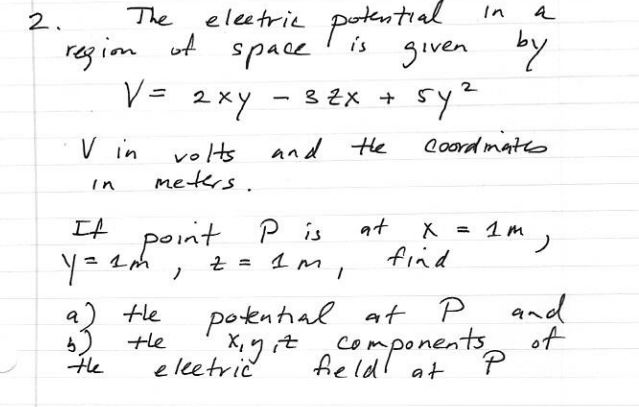 2. The electric potential in a
region of space is given by
V = 2xy - 3zx + 5y²
V in volts and the coordinates
in meters.
If point P is at x = 1m,
y = 1m, z = 1m, find
a) the potential at P and
b) the x, y, z components of
the electric field at P